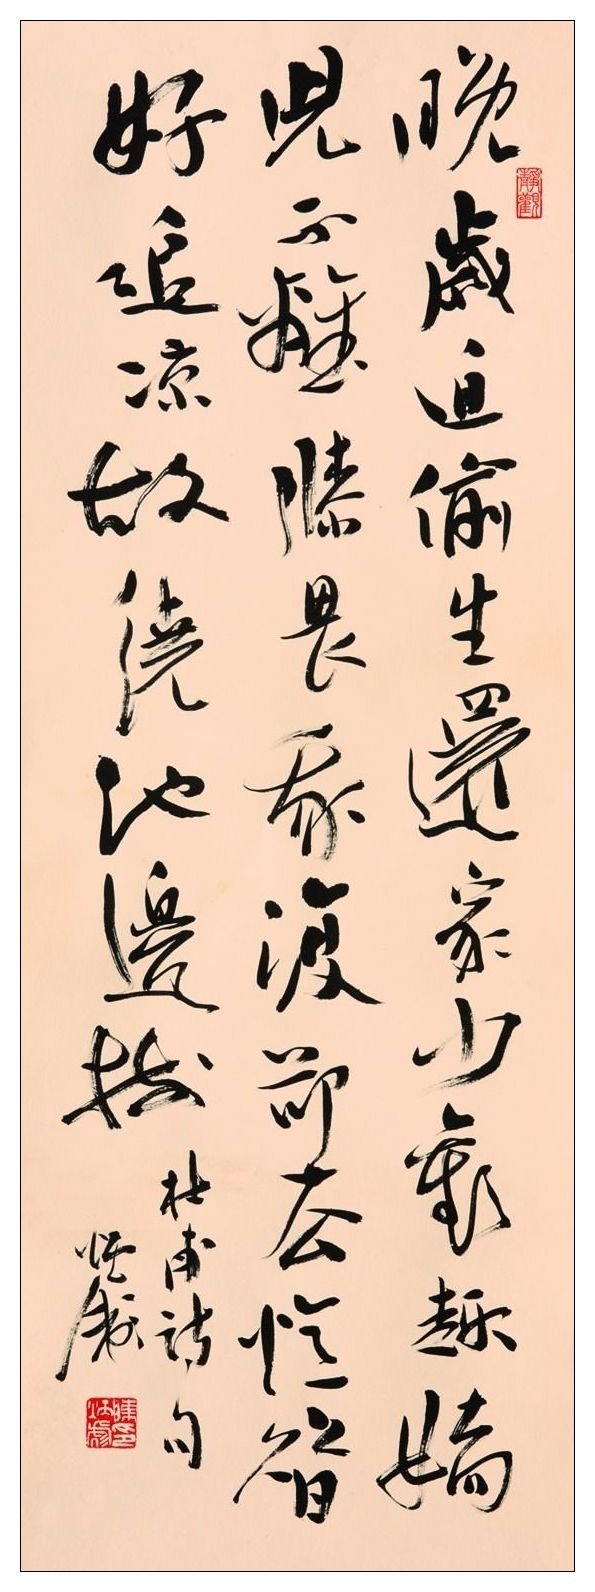 靜觀
晚歲迫偷生還家少歡趣嬌
兒不離膝畏我復卻去憶昔
好追凉故繞池邊樹
杜甫詩句